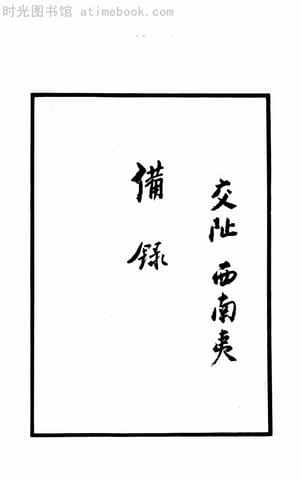 时光图书馆 atimebook.com
交阯 西南夷
備録